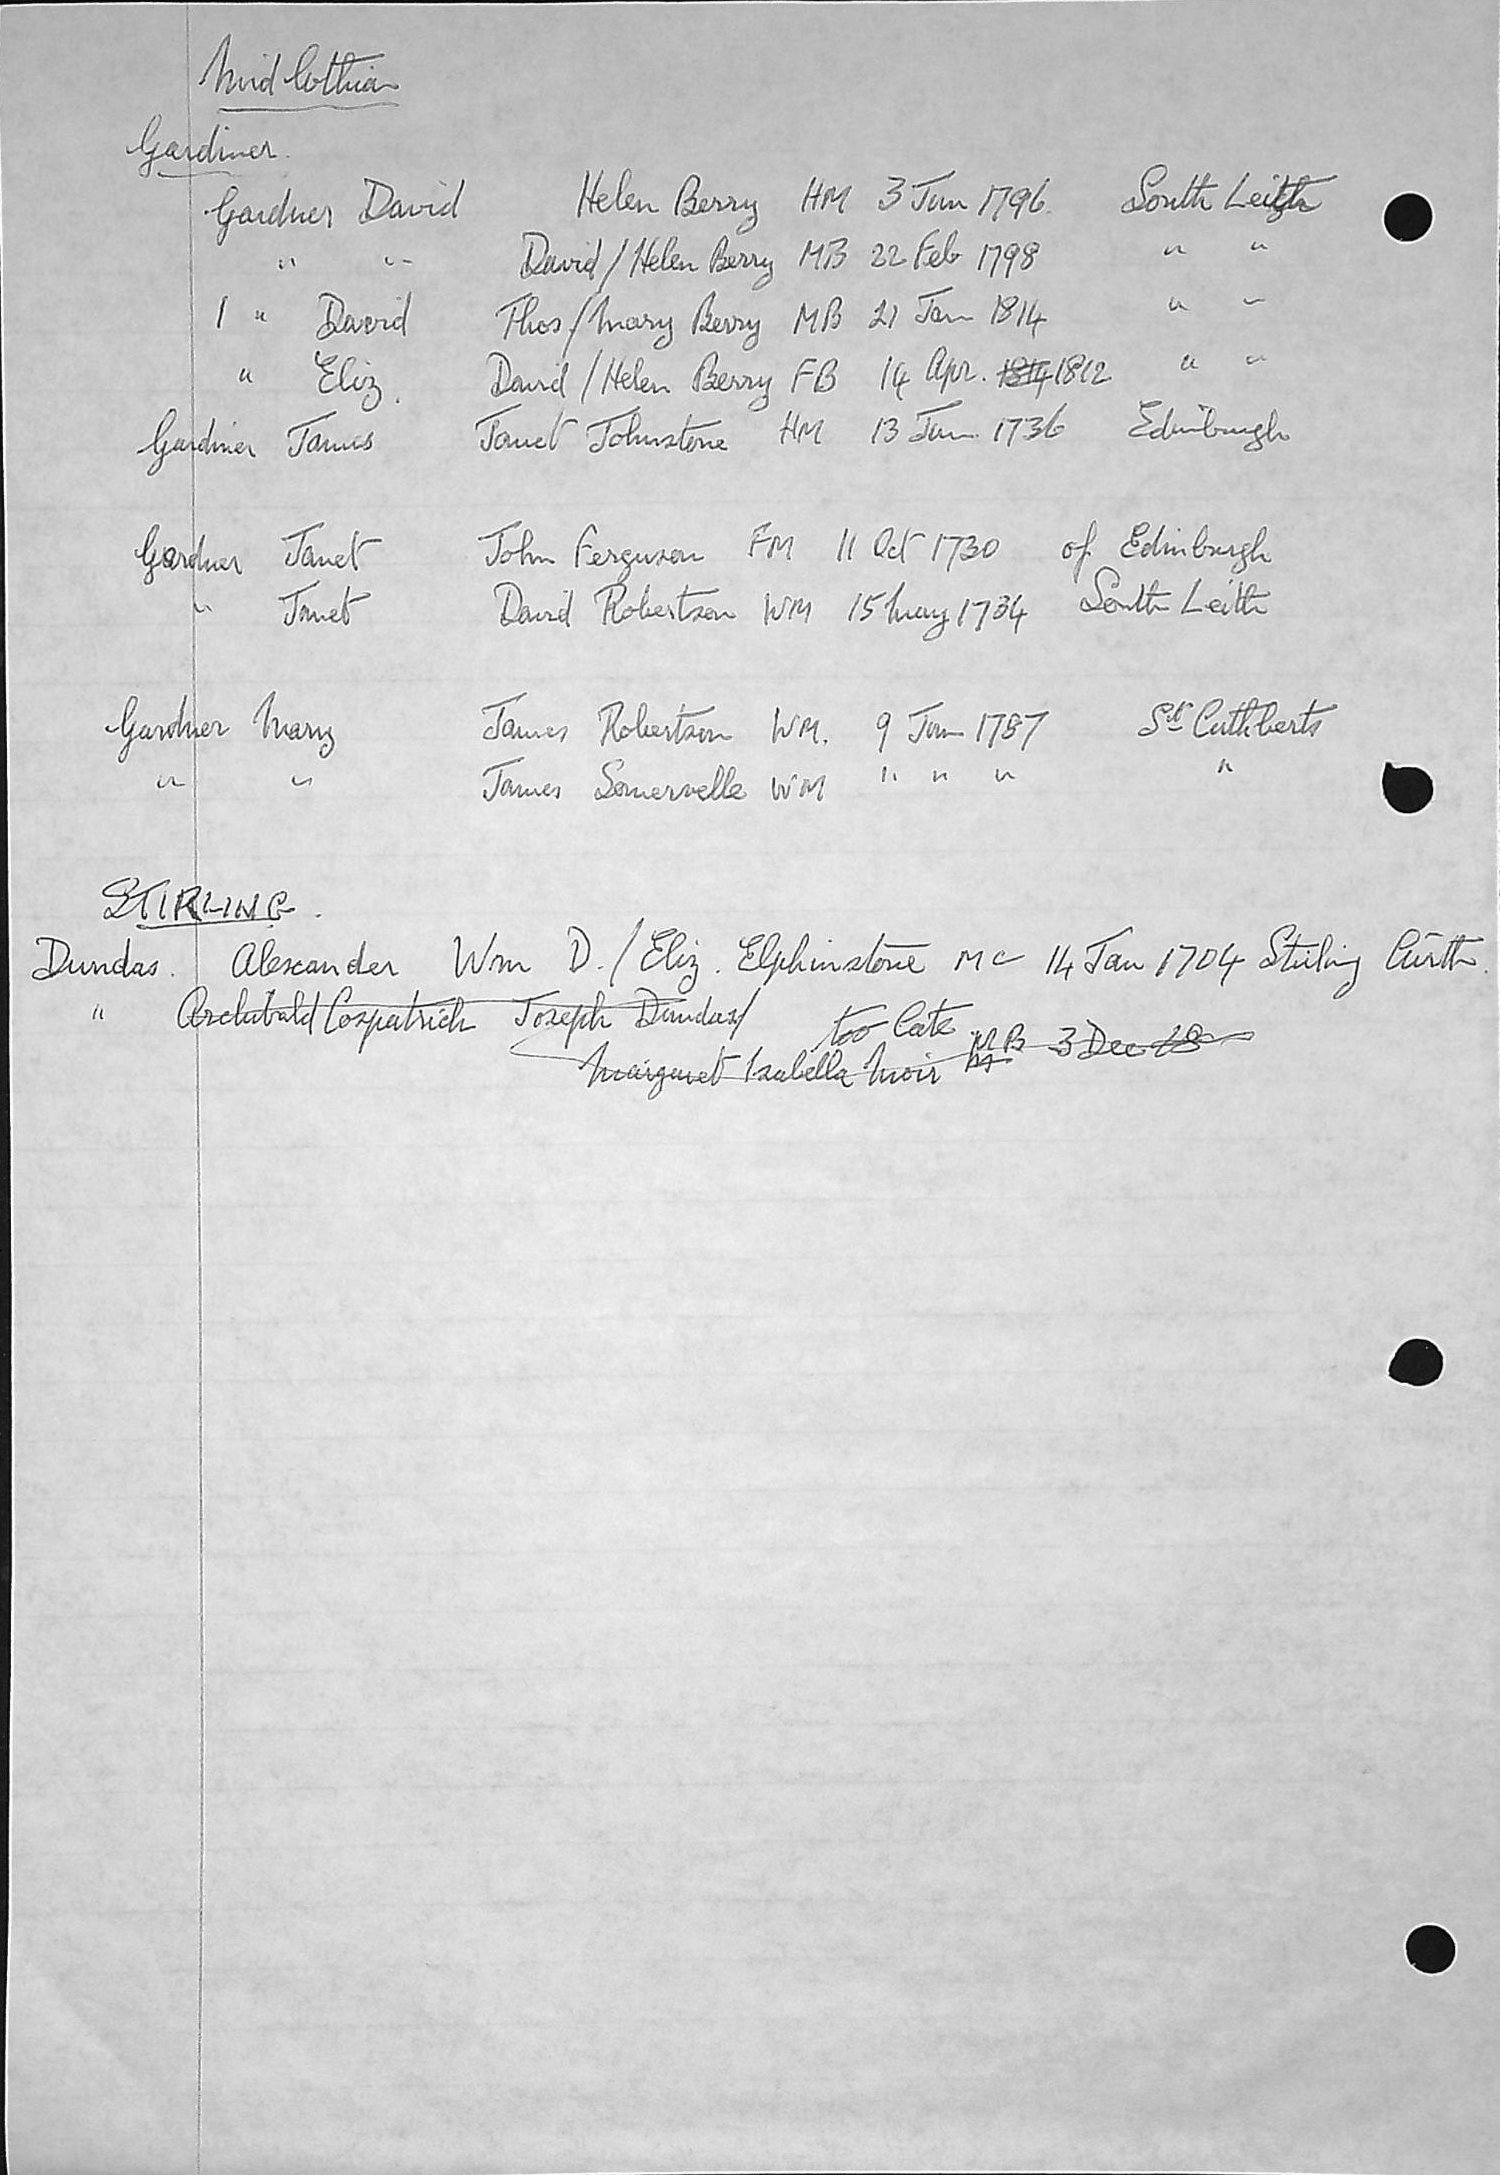 Mid Lothian
Gardiner.
Gardner David Helen Berry HM 3 Jun 1796. South Leith
" " David / Helen Berry MB 22 Feb 1798 " "
1 " David Thos / Mary Berry MB 21 Jan 1814 " "
" Eliz. David / Helen Berry FB 14 Apr. 1814 1812 " "
Gardiner James Janet Johnstone HM 13 Jun 1736 Edinburgh
Gardner Janet John Ferguson FM 11 Oct 1730 of Edinburgh
" Janet David Robertson WM 15 May 1734 South Leith
Gardner Mary James Robertson WM. 9 Jan 1787 St Cuthberts
" " James Somervelle WM " " " "
STIRLING.
Dundas. Alexander Wm D. / Eliz. Elphinstone MC 14 Jan 1704 Stirling
" Archibald Cospatrick Joseph Dundas / too late
Margaret Isabella Moir MB 3 Dec 18